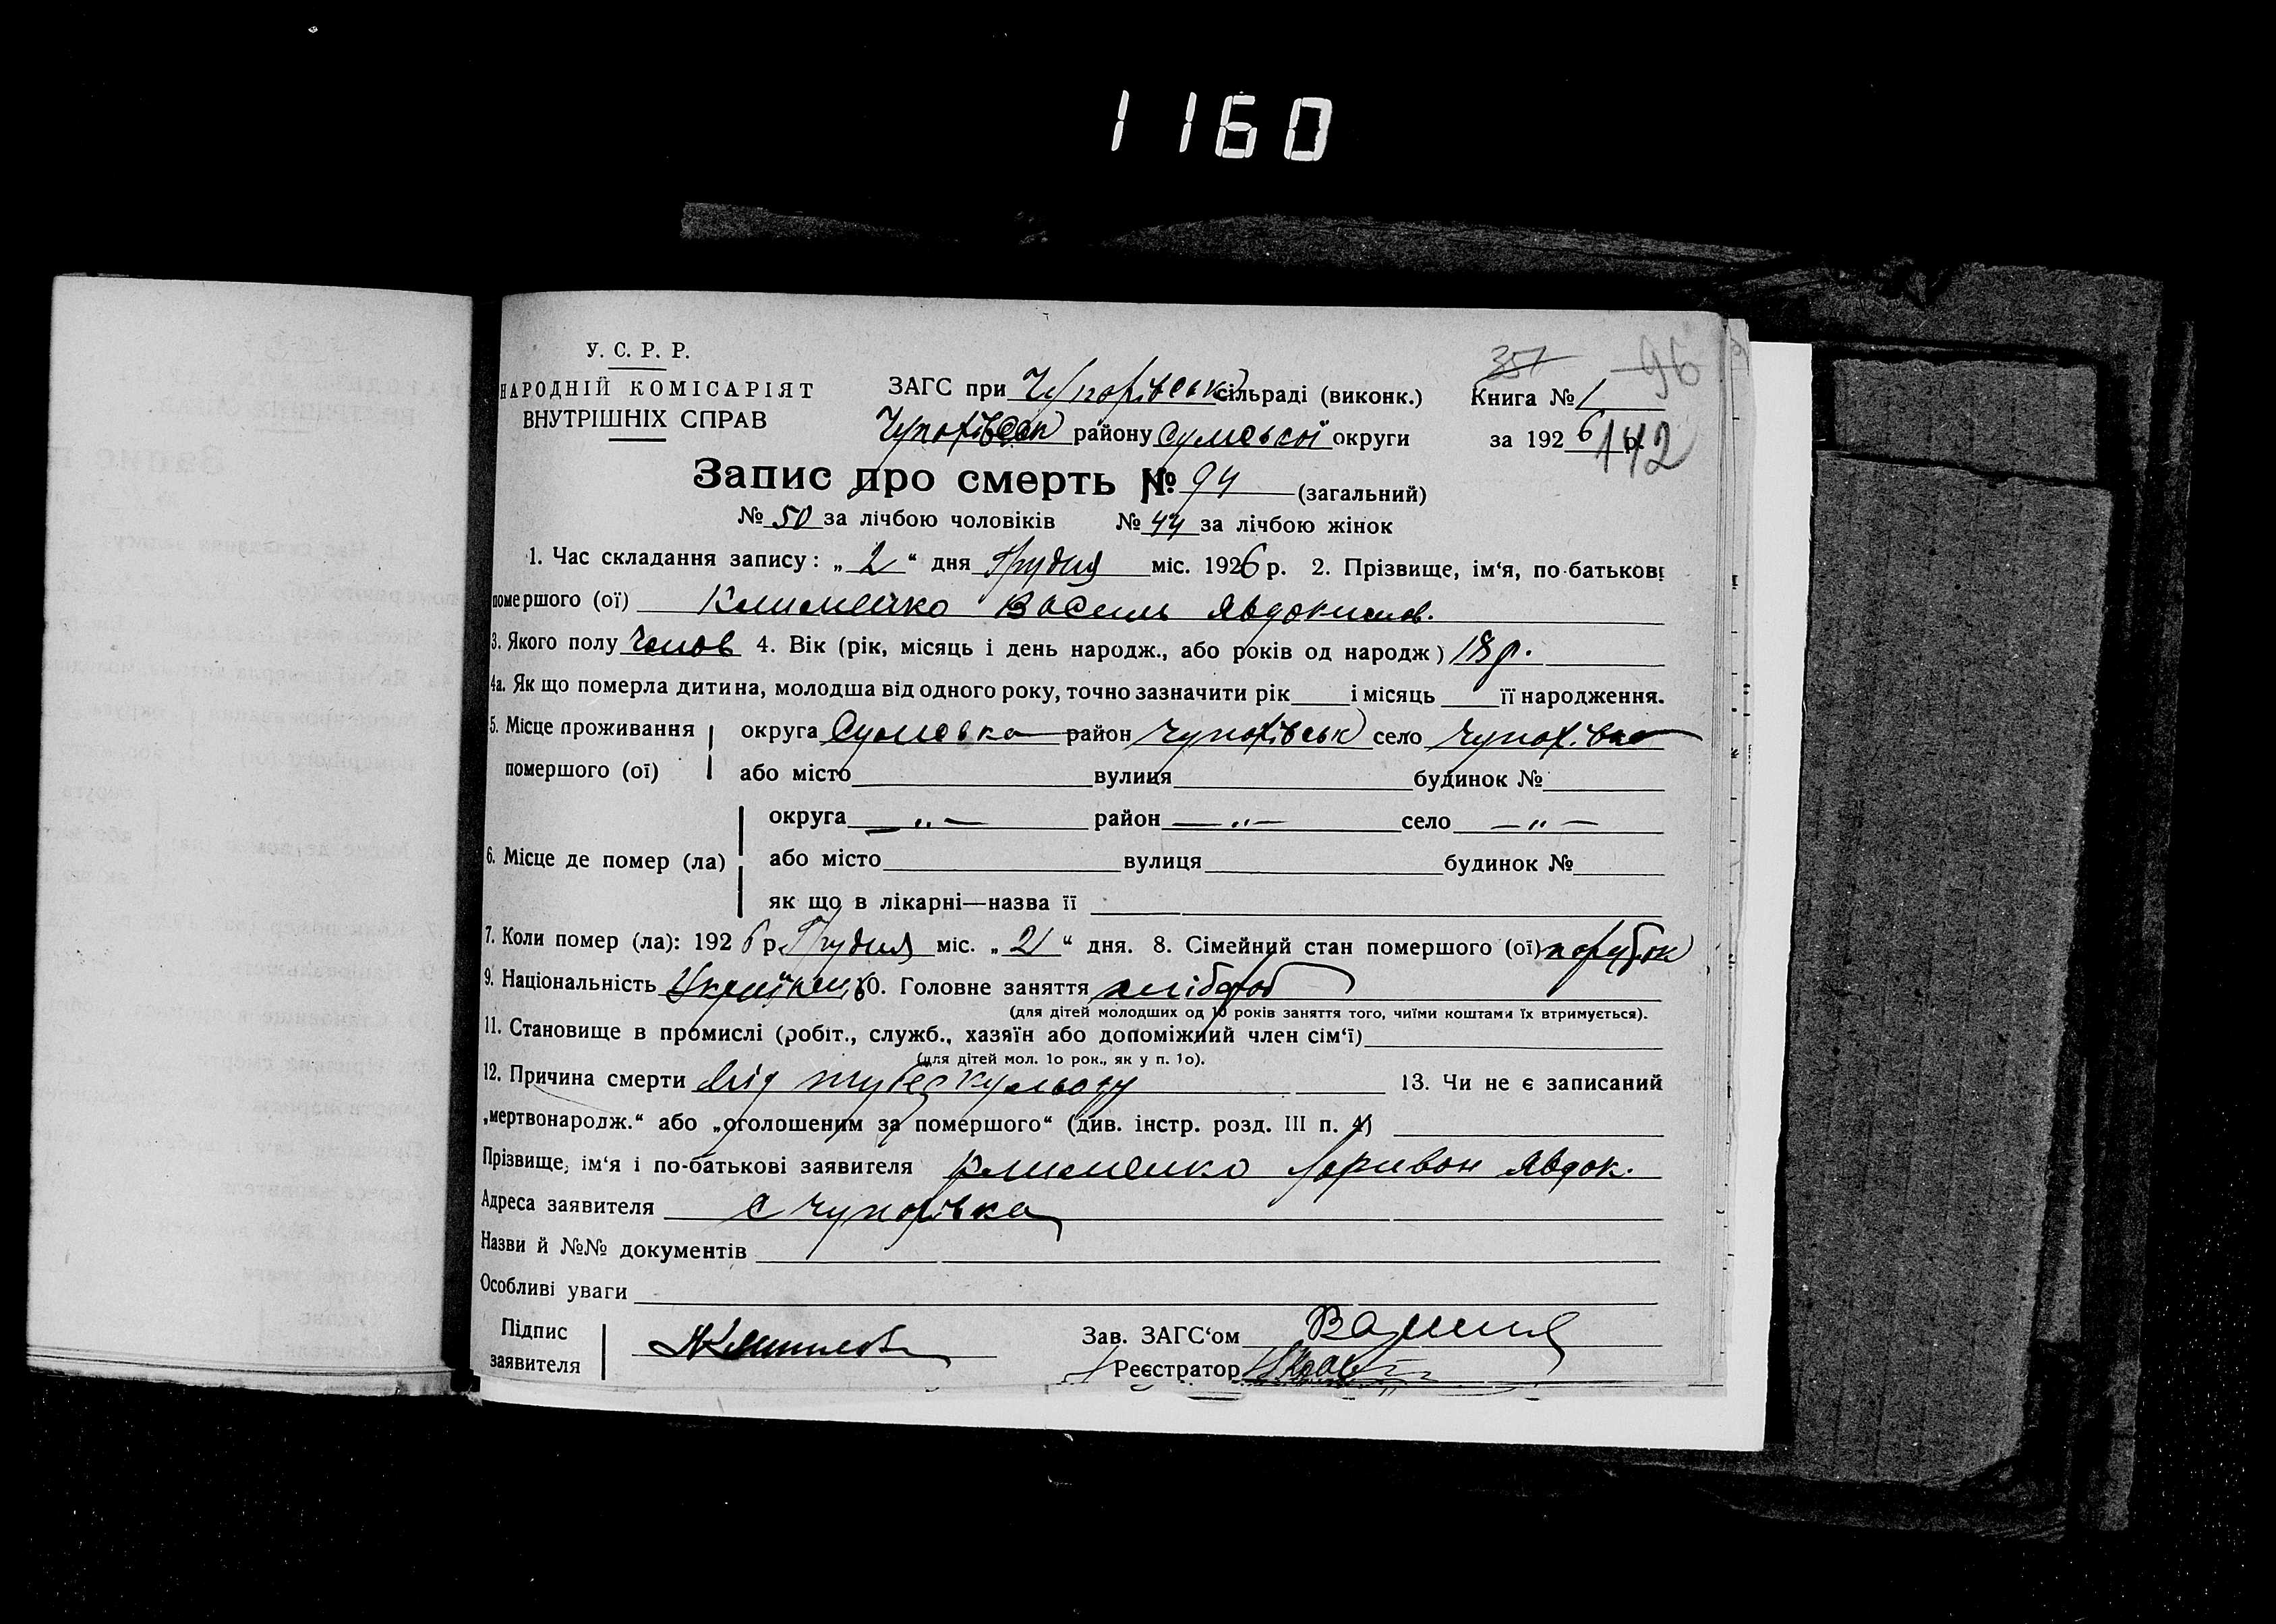 1160
У. С. Р. Р.
НАРОДНІЙ КОМІСАРІЯТ
ВНУТРІШНІХ СПРАВ
357 96
ЗАГС при Чупахівськ сільраді (виконк.) Книга № 1
Чупахівськ району Сумської округи за 1926 р.
142
Запис про смерть № 94 (загальний)
№ 50 за лічбою чоловіків № 44 за лічбою жінок
1. Час складання запису: „ 2 “ дня Грудня міс. 1926 р. 2. Прізвище, ім‘я, по-батькові
помершого (ої) Клименко Василь Явдокимов.
3. Якого полу Чолов 4. Вік (рік, місяць і день народж., або років од народж) 18 р.
4а. Як що померла дитина, молодша від одного року, точно зазначити рік і місяць її народження.
5. Місце проживання округа Сумська район Чупахівськ село Чупахівка
помершого (ої) або місто вулиця будинок №
округа —„— район —„— село —„—
6. Місце де помер (ла) або місто вулиця будинок №
як що в лікарні—назва її
7. Коли помер (ла): 1926 р. Грудня міс. „ “ дня. 8. Сімейний стан помершого (ої) парубок
9. Національність Українец 10. Головне заняття хлібороб
(для дітей молодших од 10 років заняття того, чиїми коштами їх втримується).
11. Становище в промислі (робіт., служб., хазяїн або допоміжний член сім‘ї)
(для дітей мол. 10 рок., як у п. 10).
12. Причина смерти від туберкульозу 13. Чи не є записаний
„мертвонародж.“ або „оголошеним за помершого“ (див. інстр. розд. III п. 4)
Прізвище, ім‘я і по-батькові заявителя Клименко Ларивон Явдок.
Адреса заявителя с Чупахівка
Назви й №№ документів
Особливі уваги
Підпис
заявителя
Зав. ЗАГС‘ом
Реєстратор